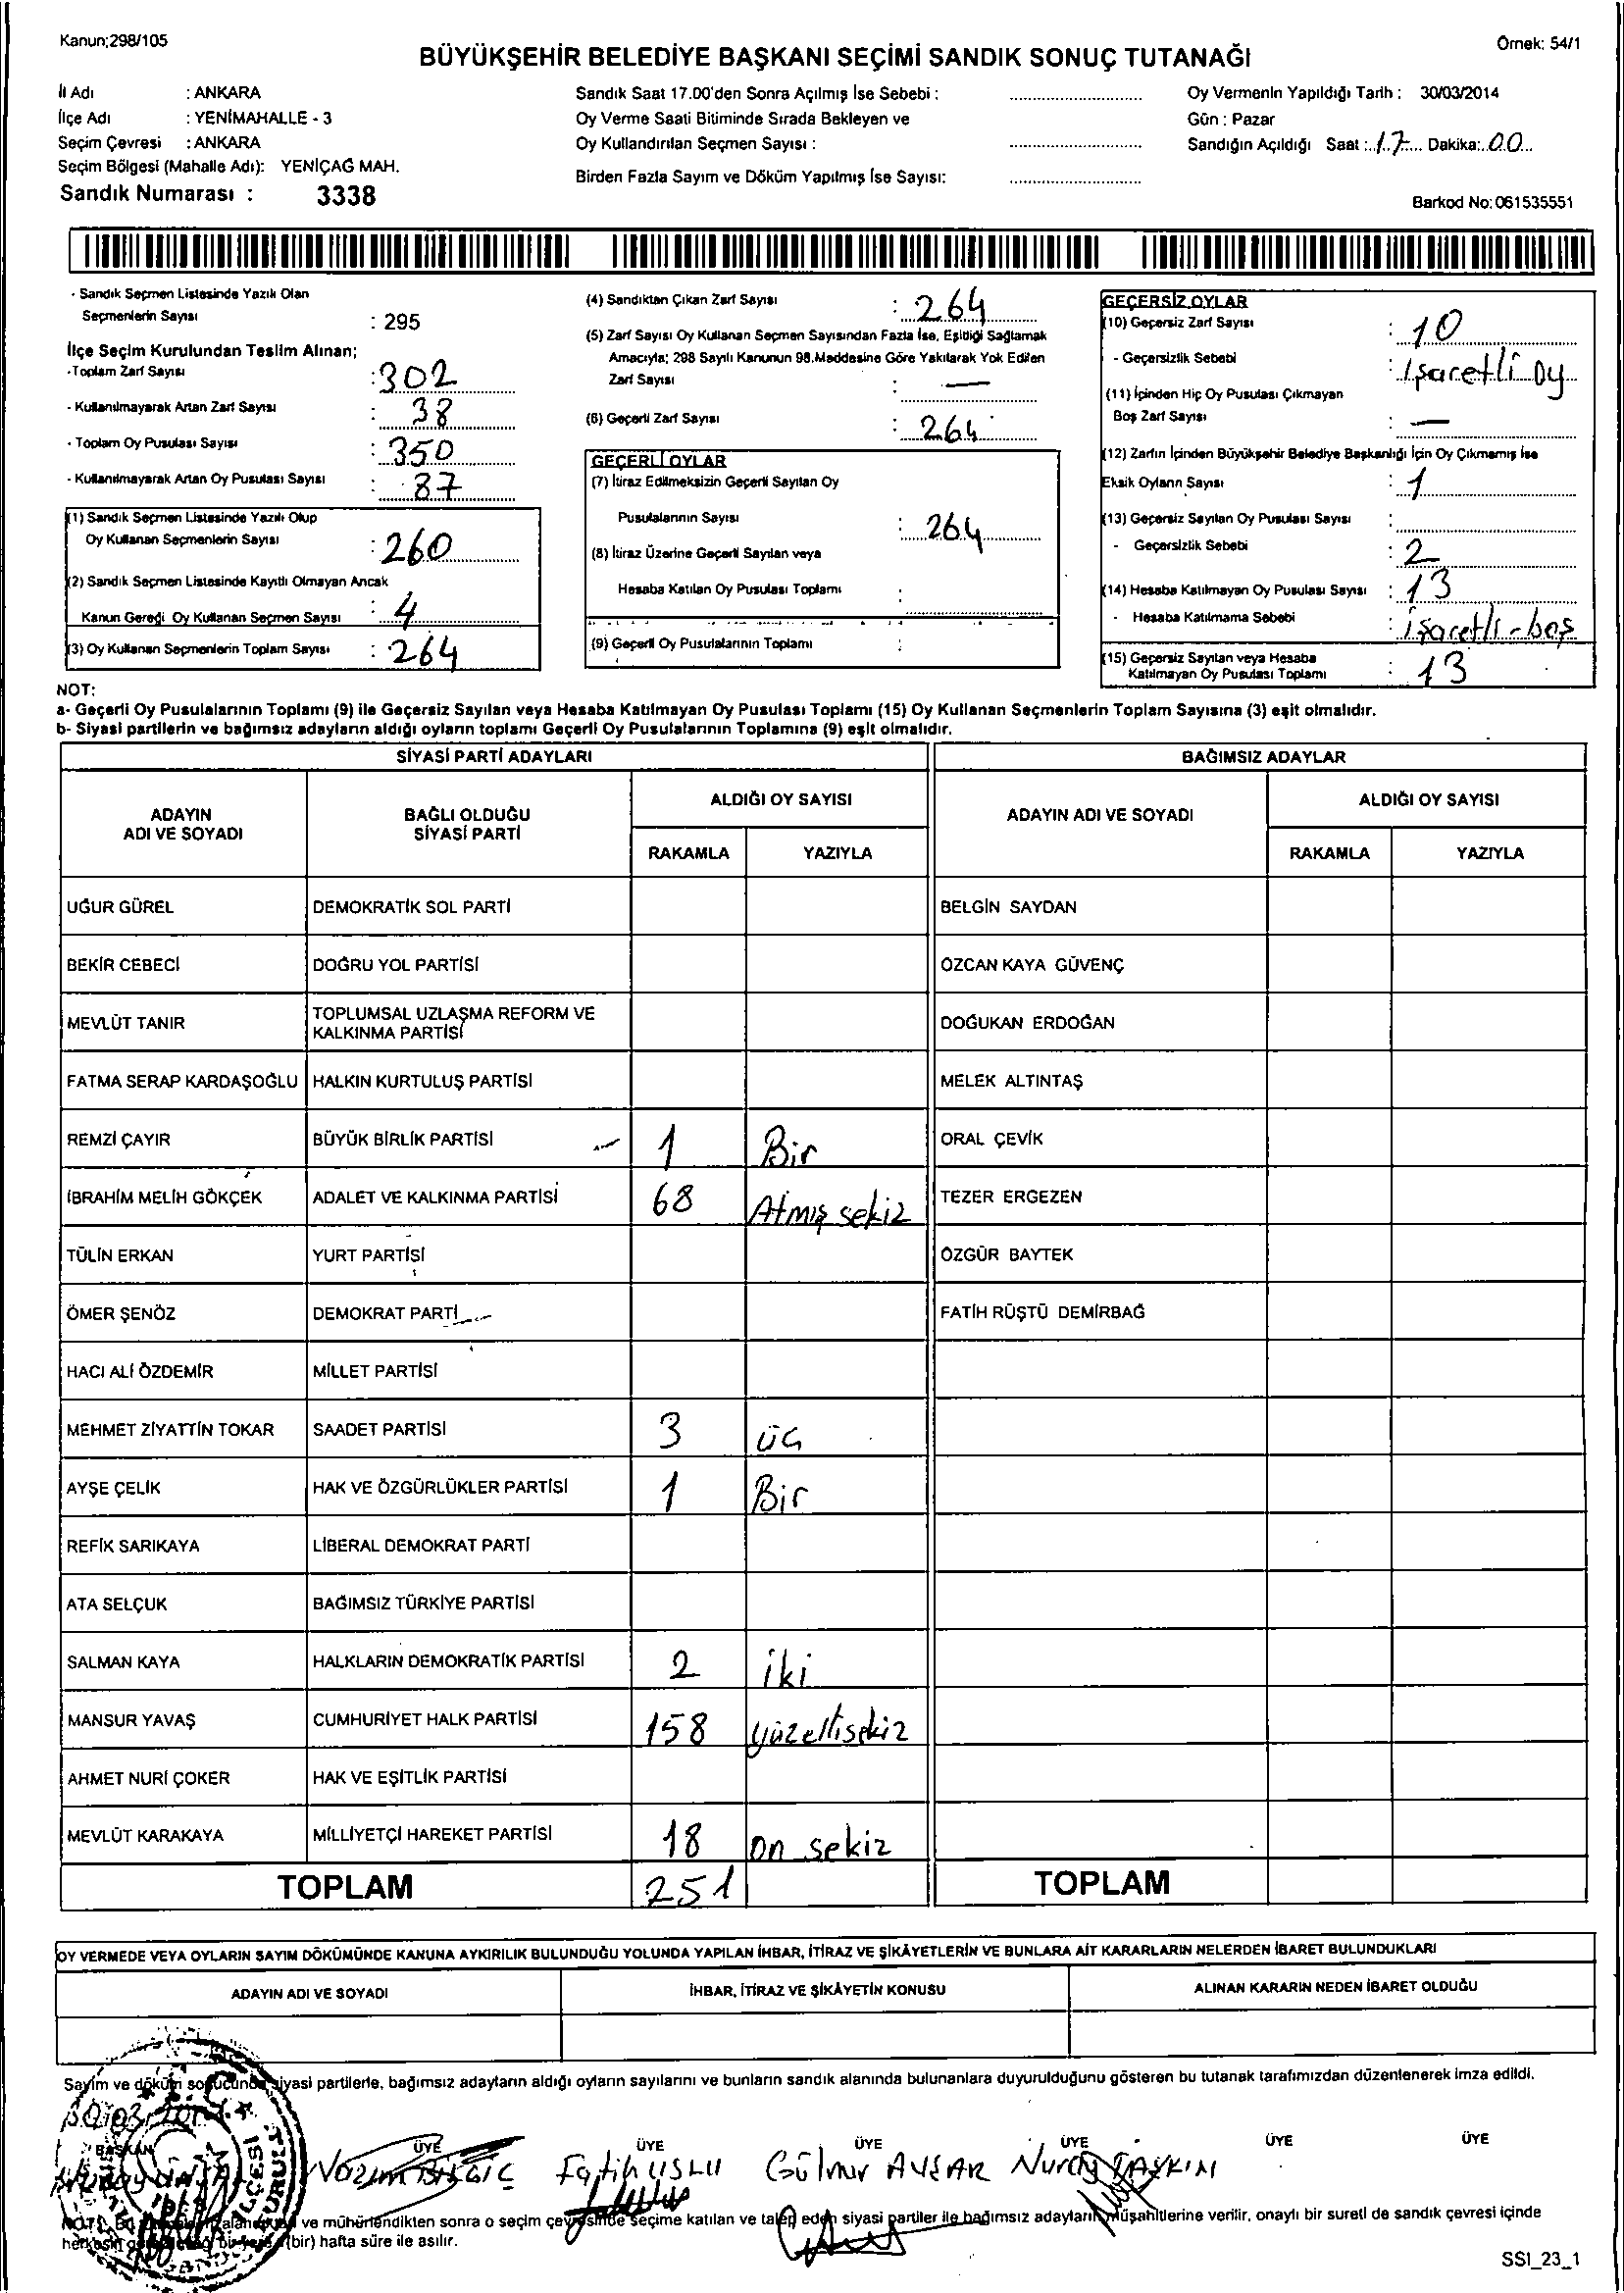 Kanun;298/105
Örnek: 54/1
BÜYÜKŞEHİR BELEDİYE BAŞKANI SEÇİMİ SANDIK SONUÇ TUTANAĞI
İl Adı : ANKARA
İlçe Adı : YENİMAHALLE - 3
Seçim Çevresi : ANKARA
Seçim Bölgesi (Mahalle Adı): YENİÇAĞ MAH.
Sandık Numarası : 3338
Sandık Saat 17.00'den Sonra Açılmış İse Sebebi :
Oy Verme Saati Bitiminde Sırada Bekleyen ve
Oy Kullandırılan Seçmen Sayısı :
Birden Fazla Sayım ve Döküm Yapılmış İse Sayısı:
Oy Vermenin Yapıldığı Tarih : 30/03/2014
Gün : Pazar
Sandığın Açıldığı Saat : 17 Dakika: 00
Barkod No: 061535551
- Sandık Seçmen Listesinde Yazılı Olan
Seçmenlerin Sayısı : 295
İlçe Seçim Kurulundan Teslim Alınan;
-Toplam Zarf Sayısı : 302
- Kullanılmayarak Artan Zarf Sayısı : 38
- Toplam Oy Pusulası Sayısı : 350
- Kullanılmayarak Artan Oy Pusulası Sayısı : 87
(1) Sandık Seçmen Listesinde Yazılı Olup
Oy Kullanan Seçmenlerin Sayısı : 260
(2) Sandık Seçmen Listesinde Kayıtlı Olmayan Ancak
Kanun Gereği Oy Kullanan Seçmen Sayısı : 4
(3) Oy Kullanan Seçmenlerin Toplam Sayısı : 264
(4) Sandıktan Çıkan Zarf Sayısı : 264
(5) Zarf Sayısı Oy Kullanan Seçmen Sayısından Fazla İse, Eşitliği Sağlamak
Amacıyla; 298 Sayılı Kanunun 98.Maddesine Göre Yakılarak Yok Edilen
Zarf Sayısı : —
(6) Geçerli Zarf Sayısı : 264
GEÇERLİ OYLAR
(7) İtiraz Edilmeksizin Geçerli Sayılan Oy
Pusulalarının Sayısı : 264
(8) İtiraz Üzerine Geçerli Sayılan veya
Hesaba Katılan Oy Pusulası Toplamı :
(9) Geçerli Oy Pusulalarının Toplamı :
GEÇERSİZ OYLAR
(10) Geçersiz Zarf Sayısı : 10
- Geçersizlik Sebebi : İşaretli Oy
(11) İçinden Hiç Oy Pusulası Çıkmayan
Boş Zarf Sayısı : —
(12) Zarfın İçinden Büyükşehir Belediye Başkanlığı İçin Oy Çıkmamış İse
Eksik Oyların Sayısı : 1
(13) Geçersiz Sayılan Oy Pusulası Sayısı :
- Geçersizlik Sebebi : 2
(14) Hesaba Katılmayan Oy Pusulası Sayısı : 13
- Hesaba Katılmama Sebebi : işaretli - boş
(15) Geçersiz Sayılan veya Hesaba
Katılmayan Oy Pusulası Toplamı : 13
NOT:
a- Geçerli Oy Pusulalarının Toplamı (9) ile Geçersiz Sayılan veya Hesaba Katılmayan Oy Pusulası Toplamı (15) Oy Kullanan Seçmenlerin Toplam Sayısına (3) eşit olmalıdır.
b- Siyasi partilerin ve bağımsız adayların aldığı oyların toplamı Geçerli Oy Pusulalarının Toplamına (9) eşit olmalıdır.
SİYASİ PARTİ ADAYLARI BAĞIMSIZ ADAYLAR
ADAYIN
ADI VE SOYADI
BAĞLI OLDUĞU
SİYASİ PARTİ
ALDIĞI OY SAYISI
RAKAMLA YAZIYLA
ADAYIN ADI VE SOYADI
ALDIĞI OY SAYISI
RAKAMLA YAZIYLA
UĞUR GÜREL DEMOKRATİK SOL PARTİ BELGİN SAYDAN
BEKİR CEBECİ DOĞRU YOL PARTİSİ ÖZCAN KAYA GÜVENÇ
MEVLÜT TANIR TOPLUMSAL UZLAŞMA REFORM VE
KALKINMA PARTİSİ DOĞUKAN ERDOĞAN
FATMA SERAP KARDAŞOĞLU HALKIN KURTULUŞ PARTİSİ MELEK ALTINTAŞ
REMZİ ÇAYIR BÜYÜK BİRLİK PARTİSİ 1 Bir ORAL ÇEVİK
İBRAHİM MELİH GÖKÇEK ADALET VE KALKINMA PARTİSİ 68 Atmış sekiz TEZER ERGEZEN
TÜLİN ERKAN YURT PARTİSİ ÖZGÜR BAYTEK
ÖMER ŞENÖZ DEMOKRAT PARTİ FATİH RÜŞTÜ DEMİRBAĞ
HACI ALİ ÖZDEMİR MİLLET PARTİSİ
MEHMET ZİYATTİN TOKAR SAADET PARTİSİ 3 üç
AYŞE ÇELİK HAK VE ÖZGÜRLÜKLER PARTİSİ 1 Bir
REFİK SARIKAYA LİBERAL DEMOKRAT PARTİ
ATA SELÇUK BAĞIMSIZ TÜRKİYE PARTİSİ
SALMAN KAYA HALKLARIN DEMOKRATİK PARTİSİ 2 iki
MANSUR YAVAŞ CUMHURİYET HALK PARTİSİ 158 yüzellisekiz
AHMET NURİ ÇOKER HAK VE EŞİTLİK PARTİSİ
MEVLÜT KARAKAYA MİLLİYETÇİ HAREKET PARTİSİ 18 on sekiz
TOPLAM 251 TOPLAM
OY VERMEDE VEYA OYLARIN SAYIM DÖKÜMÜNDE KANUNA AYKIRILIK BULUNDUĞU YOLUNDA YAPILAN İHBAR, İTİRAZ VE ŞİKÂYETLERİN VE BUNLARA AİT KARARLARIN NELERDEN İBARET BULUNDUKLARI
ADAYIN ADI VE SOYADI İHBAR, İTİRAZ VE ŞİKÂYETİN KONUSU ALINAN KARARIN NEDEN İBARET OLDUĞU
Sayım ve döküm sonucunda siyasi partilerle, bağımsız adayların aldığı oyların sayılarını ve bunların sandık alanında bulunanlara duyurulduğunu gösteren bu tutanak tarafımızdan düzenlenerek imza edildi.
30/03/2014
BAŞKAN ÜYE ÜYE ÜYE ÜYE ÜYE ÜYE
Nazım BİLGİÇ Fatih USLU Gülnur AVŞAR Nuray TAŞKIN
ve mühürlendikten sonra o seçim çevresinde seçime katılan ve talep eden siyasi partiler ile bağımsız adayların müşahitlerine verilir, onaylı bir sureti de sandık çevresi içinde
(bir) hafta süre ile asılır.
SSI_23_1